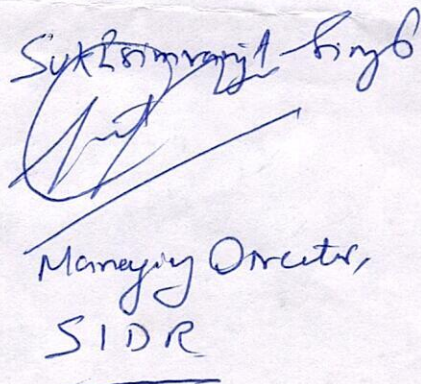 Sukhsimranjit Singh
Managing Director,
SIDR